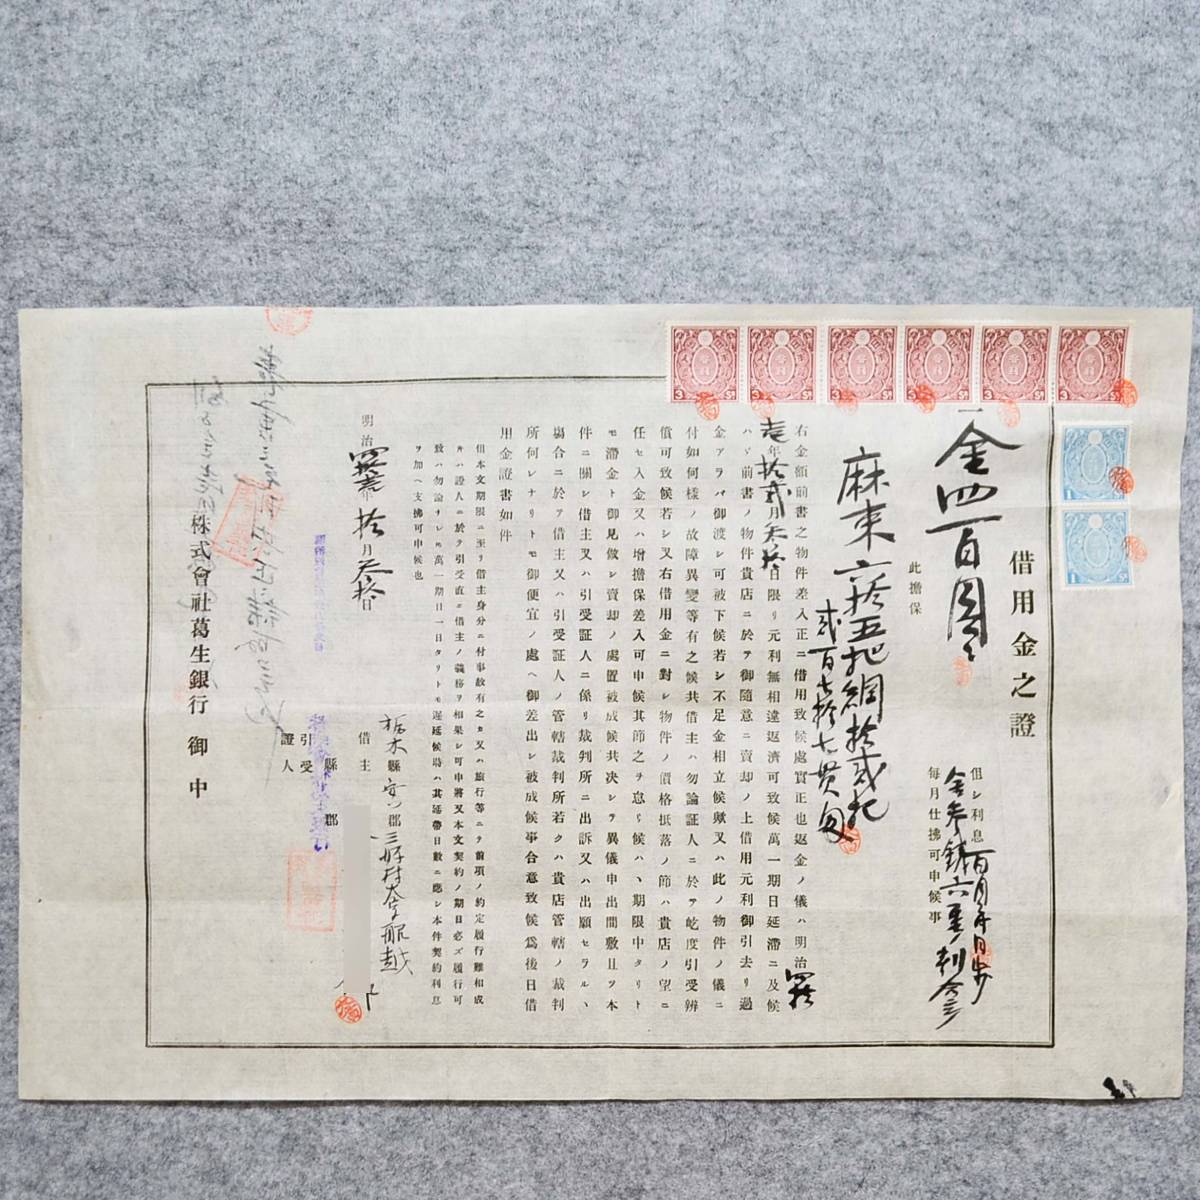 借用金之證
一金四百圓也
但シ利息百円ニ付日歩
金参銭六厘ノ割合ニテ
毎月仕拂可申候事
此擔保
麻束六拾五把綱拾弐把
弐百七拾七貫匁
右金額前書之物件差入正ニ借用致候處實正也返金ノ儀ハ明治四拾
壱年拾弐月三拾日限リ元利無相違返濟可致候萬一期日延滯ニ及候
ハヾ前書ノ物件貴店ニ於テ御隨意ニ賣却ノ上借用元利御引去リ過
金アラバ御渡シ可被下候若シ不足金相立候歟又ハ此ノ物件ノ儀ニ
付如何樣ノ故障異變等有之候共借主ハ勿論証人ニ於テ屹度引受辨
償可致候若シ又右借用金ニ對シ物件ノ價格抵落ノ節ハ貴店ノ望ニ
任セ入金又ハ增擔保差入可申候其節之ヲ怠リ候ハヽ期限中タリト
モ滯金ト御見做シ賣却ノ處置被成候共决シテ異儀申出間敷且ツ本
件ニ關シ借主又ハ引受証人ニ係リ裁判所ニ出訴又ハ出願セラルヽ
塲合ニ於テ借主又ハ引受証人ノ管轄裁判所若クハ貴店管轄ノ裁判
所何レナリトモ御便宜ノ處ヘ御差出シ被成候事合意致候爲後日借
用金證書如件
但本文期限ニ至リ借主身分ニ付事故有之カ又ハ旅行等ニテ前項ノ約定履行難相成
キハ證人ニ於テ引受直ニ借主ノ義務ヲ相果シ可申將又本文契約ノ期日必ズ履行可
致ハ勿論ナレモ萬一期日一日タリトモ遲延候塲ハ其延滯日數ニ應シ本件契約利息
ヲ加ヘ支拂可申候也
明治四拾壱年拾月三拾日
栃木縣安蘇郡三好村大字船越
借主
縣 郡
引受
證人
株式會社葛生銀行 御中
3 Sn
3 Sn
3 Sn
3 Sn
3 Sn
3 Sn
1 Sn
1 Sn